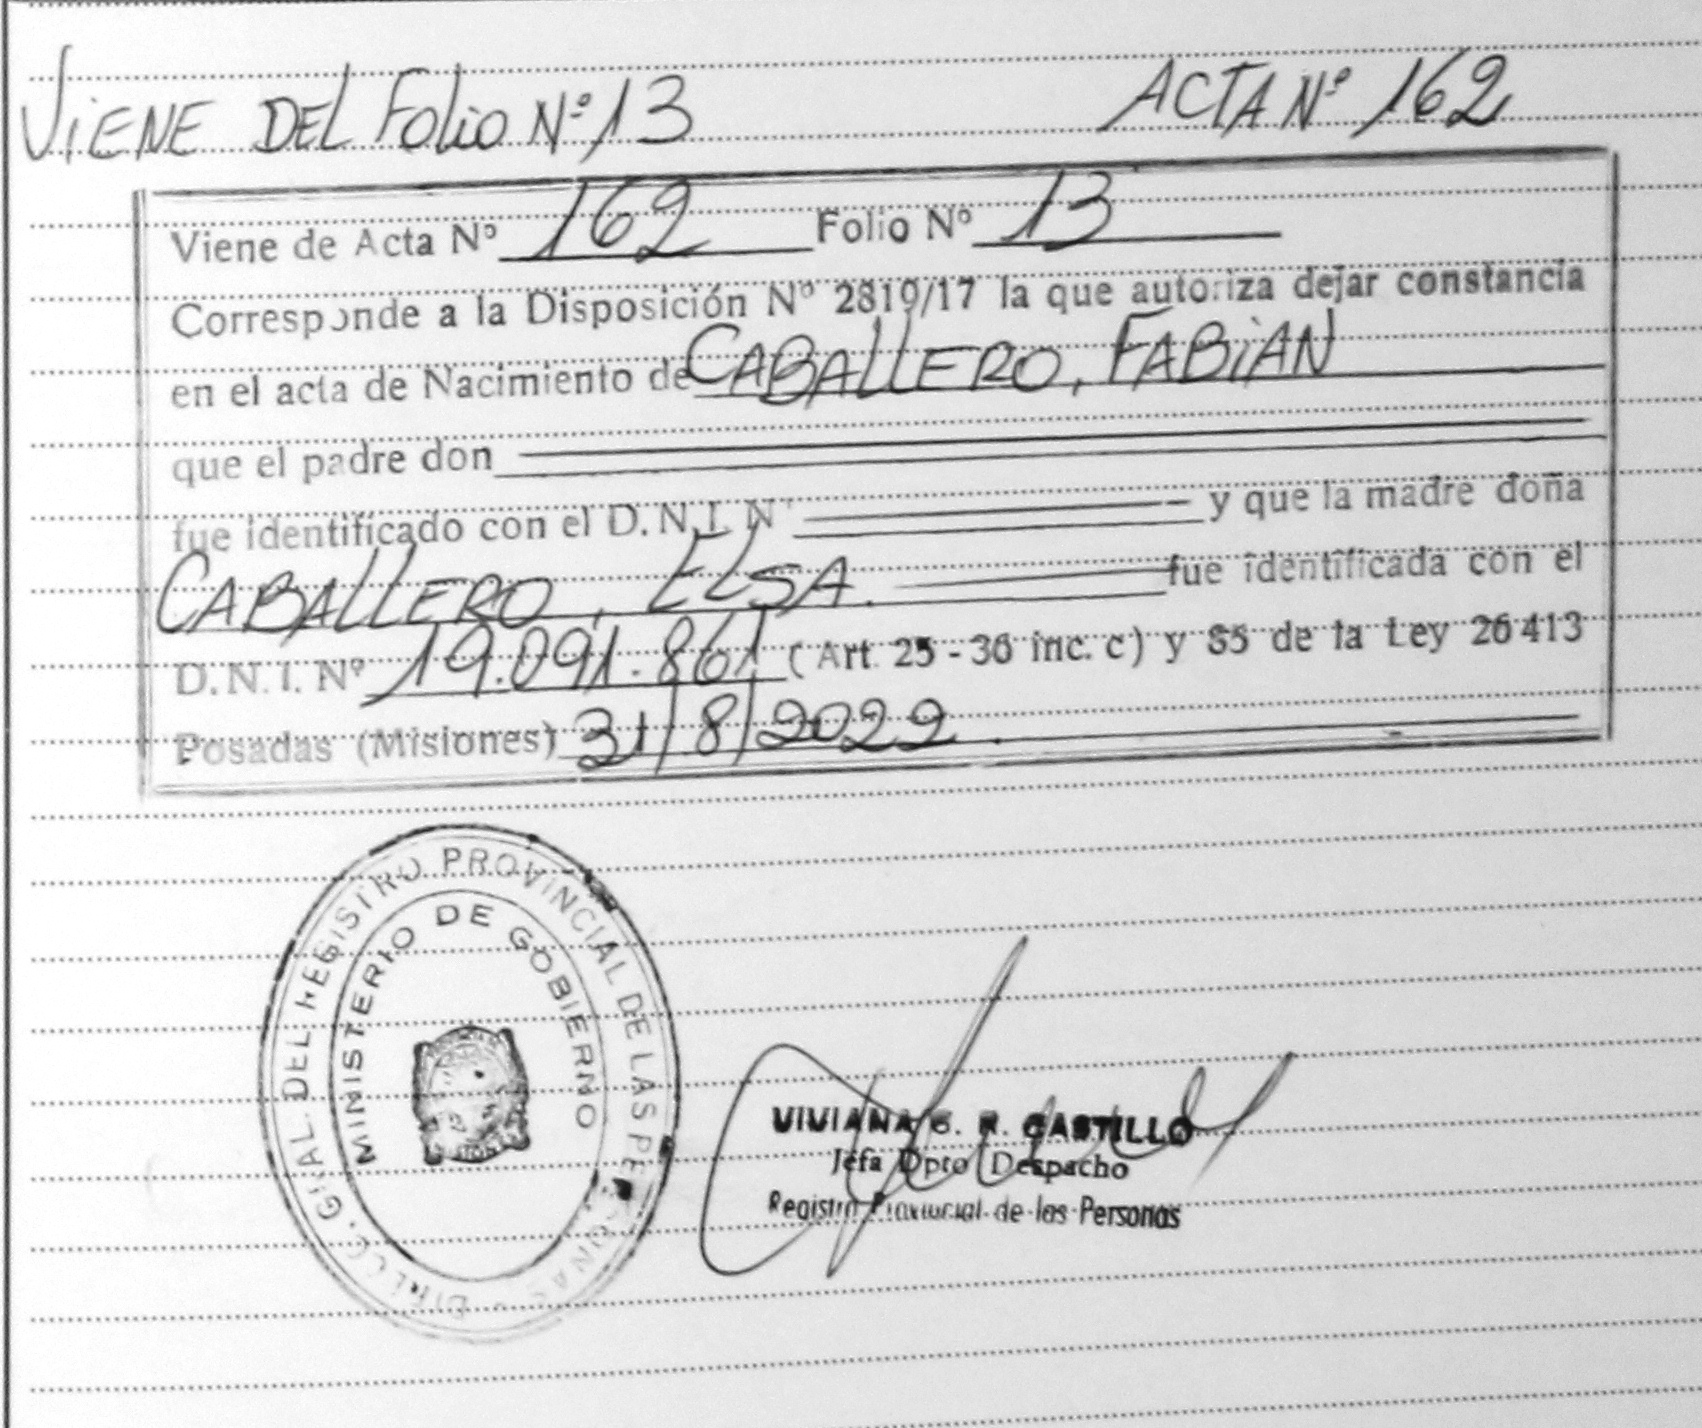 VIENE DEL FOLIO Nº 13 ACTA Nº 162
Viene de Acta Nº 162 Folio Nº 13
Corresponde a la Disposición Nº 2819/17 la que autoriza dejar constancia
en el acta de Nacimiento de CABALLERO, FABIAN
que el padre don
fue identificado con el D.N.I. Nº y que la madre doña
CABALLERO, ELSA. fue identificada con el
D.N.I. Nº 19.091.861 (Art. 25 - 36 inc. c) y 85 de la Ley 26413
Posadas (Misiones) 31/8/2022.
DIRECC. GRAL. DEL REGISTRO PROVINCIAL DE LAS PERSONAS
MINISTERIO DE GOBIERNO
VIVIANA G. R. CASTILLO
Jefa Dpto Despacho
Registro Provincial de las Personas